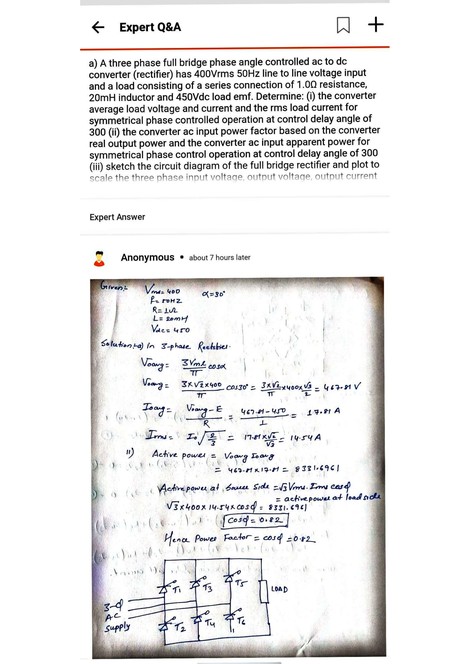 Expert Q&A
a) A three phase full bridge phase angle controlled ac to dc
converter (rectifier) has 400Vrms 50Hz line to line voltage input
and a load consisting of a series connection of 1.0Ω resistance,
20mH inductor and 450Vdc load emf. Determine: (i) the converter
average load voltage and current and the rms load current for
symmetrical phase controlled operation at control delay angle of
300 (ii) the converter ac input power factor based on the converter
real output power and the converter ac input apparent power for
symmetrical phase control operation at control delay angle of 300
(iii) sketch the circuit diagram of the full bridge rectifier and plot to
scale the three phase input voltage, output voltage, output current
Expert Answer
Anonymous • about 7 hours later
Given:
Vrms = 400 α = 30°
f = 50HZ
R = 1Ω
L = 20mH
Vdc = 450
Solution:- a) In 3-phase Rectifier.
Voavg = 3VmL/π cosα
Voavg = 3×√2×400/π cos30° = 3×√2×400×√3/π 2 = 467.81 V
Ioavg = Voavg-E/R = 467.81-450/1 = 17.81 A
Irms = Io √2/3 = 17.81×√2/√3 = 14.54 A
ii) Active power = Voavg Ioavg
= 467.81×17.81 = 8331.6961
Active power at Source Side = √3 Vrms. Irms cosϕ
= active power at load side
√3×400×14.54×cosϕ = 8331.6961
cosϕ = 0.82
Hence Power Factor = cosϕ = 0.82
T1 T3 T5
LOAD
3-ϕ
A.C
Supply
T2 T4 T6